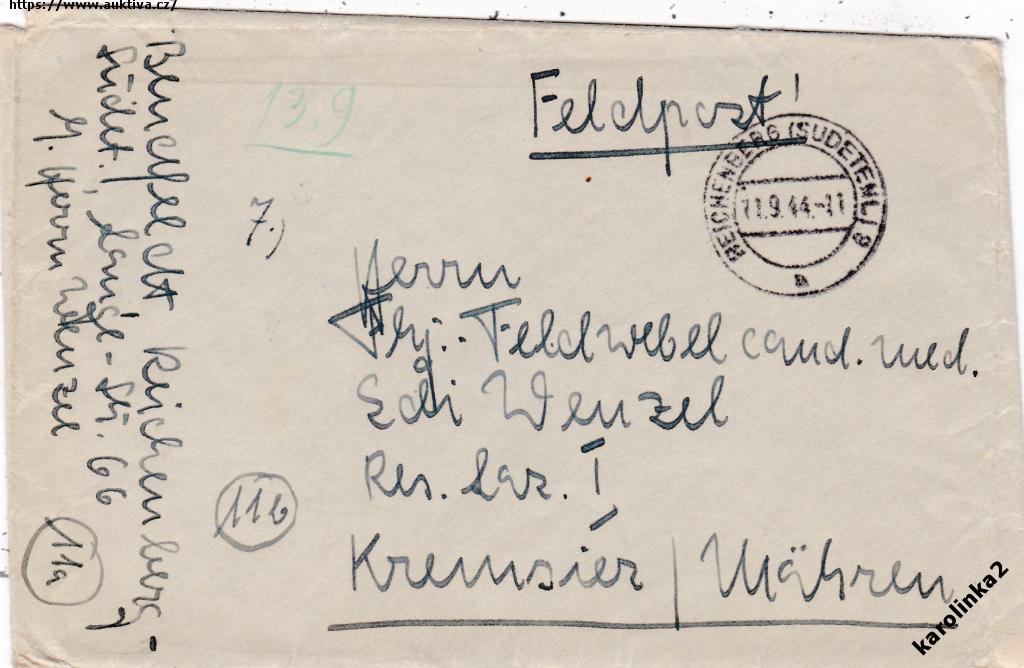 https://www.auktiva.cz/
Feldpost!
13.9.
REICHENBERG (SUDETENL) 9
11.9.44.-11
a
7.)
Herrn
Fhj.-Feldwebel cand. med.
Edi Wenzel
Res. Laz. I
Kremsier / Mähren
11b
Reichenberg-
Sudet., Lange-Str. 66
Herrn Wenzel
11a
karolinka2